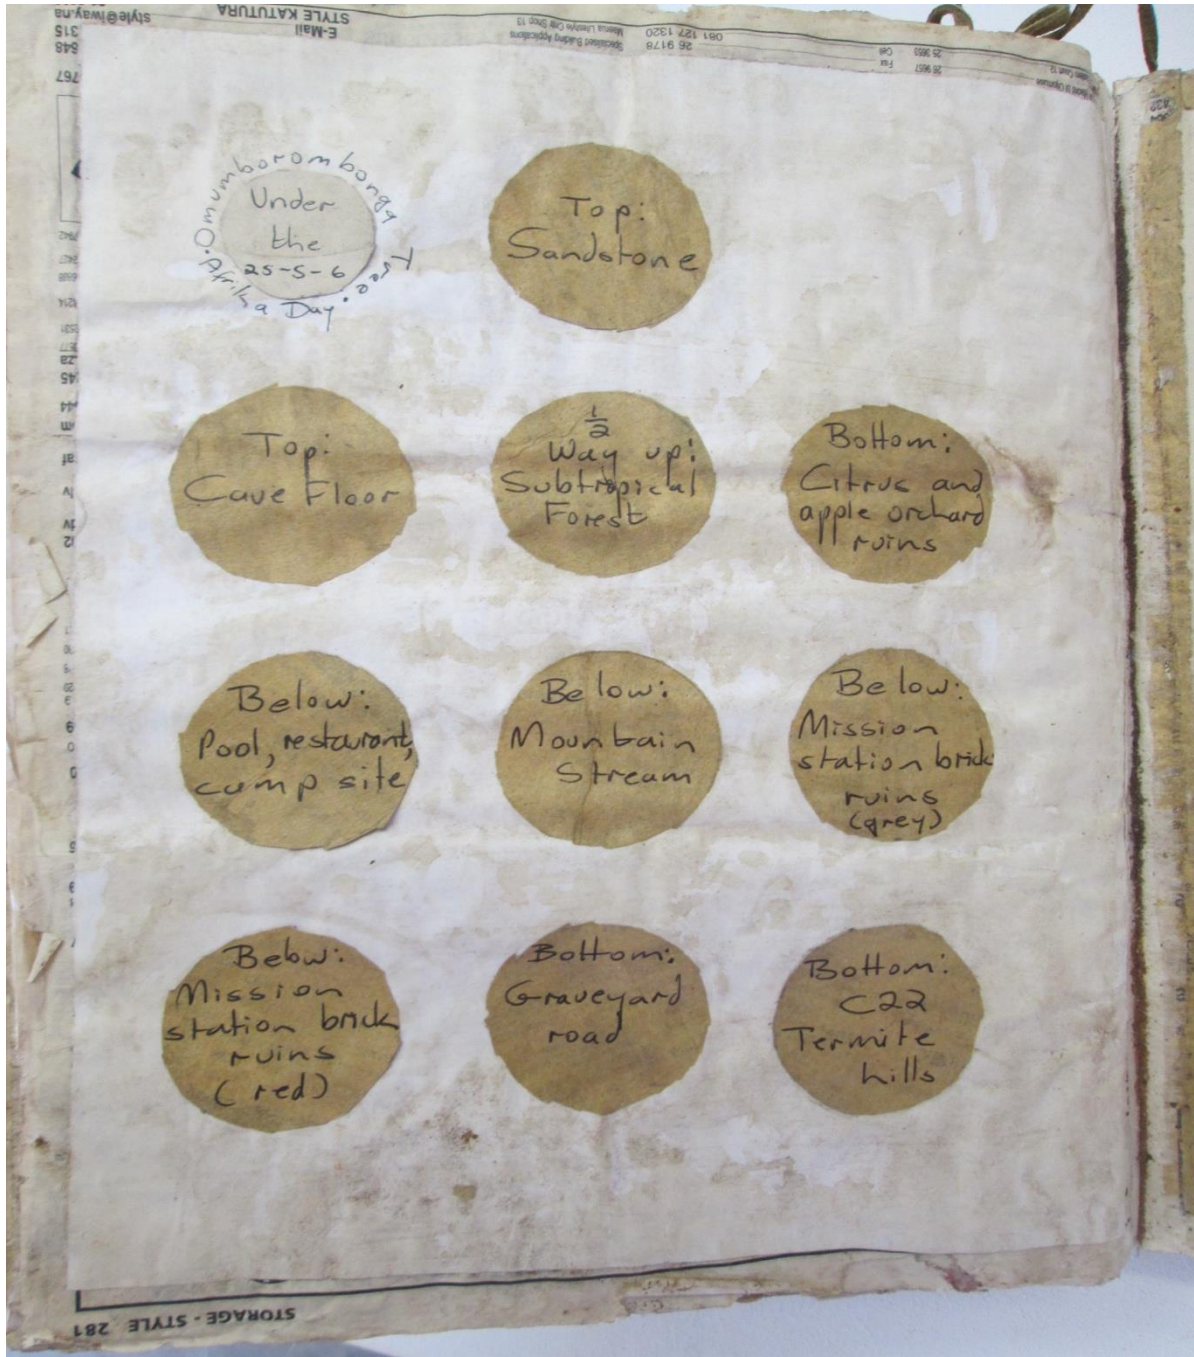 STYLE KATUTURA
E-Mail
style@iway.na
Specialised Building Applications
26 9178
081 127 1320
Fax
Cell
Omumborombonga Tree. Afrika Day.
Under
the
25-5-6
Top:
Sandstone
Top:
Cave Floor
1/2
Way up:
Subtropical
Forest
Bottom:
Citrus and
apple orchard
ruins
Below:
Pool, restaurant,
camp site
Below:
Mountain
Stream
Below:
Mission
station brick
ruins
(grey)
Below:
Mission
station brick
ruins
(red)
Bottom:
Graveyard
road
Bottom:
C22
Termite
hills
STORAGE - STYLE 281